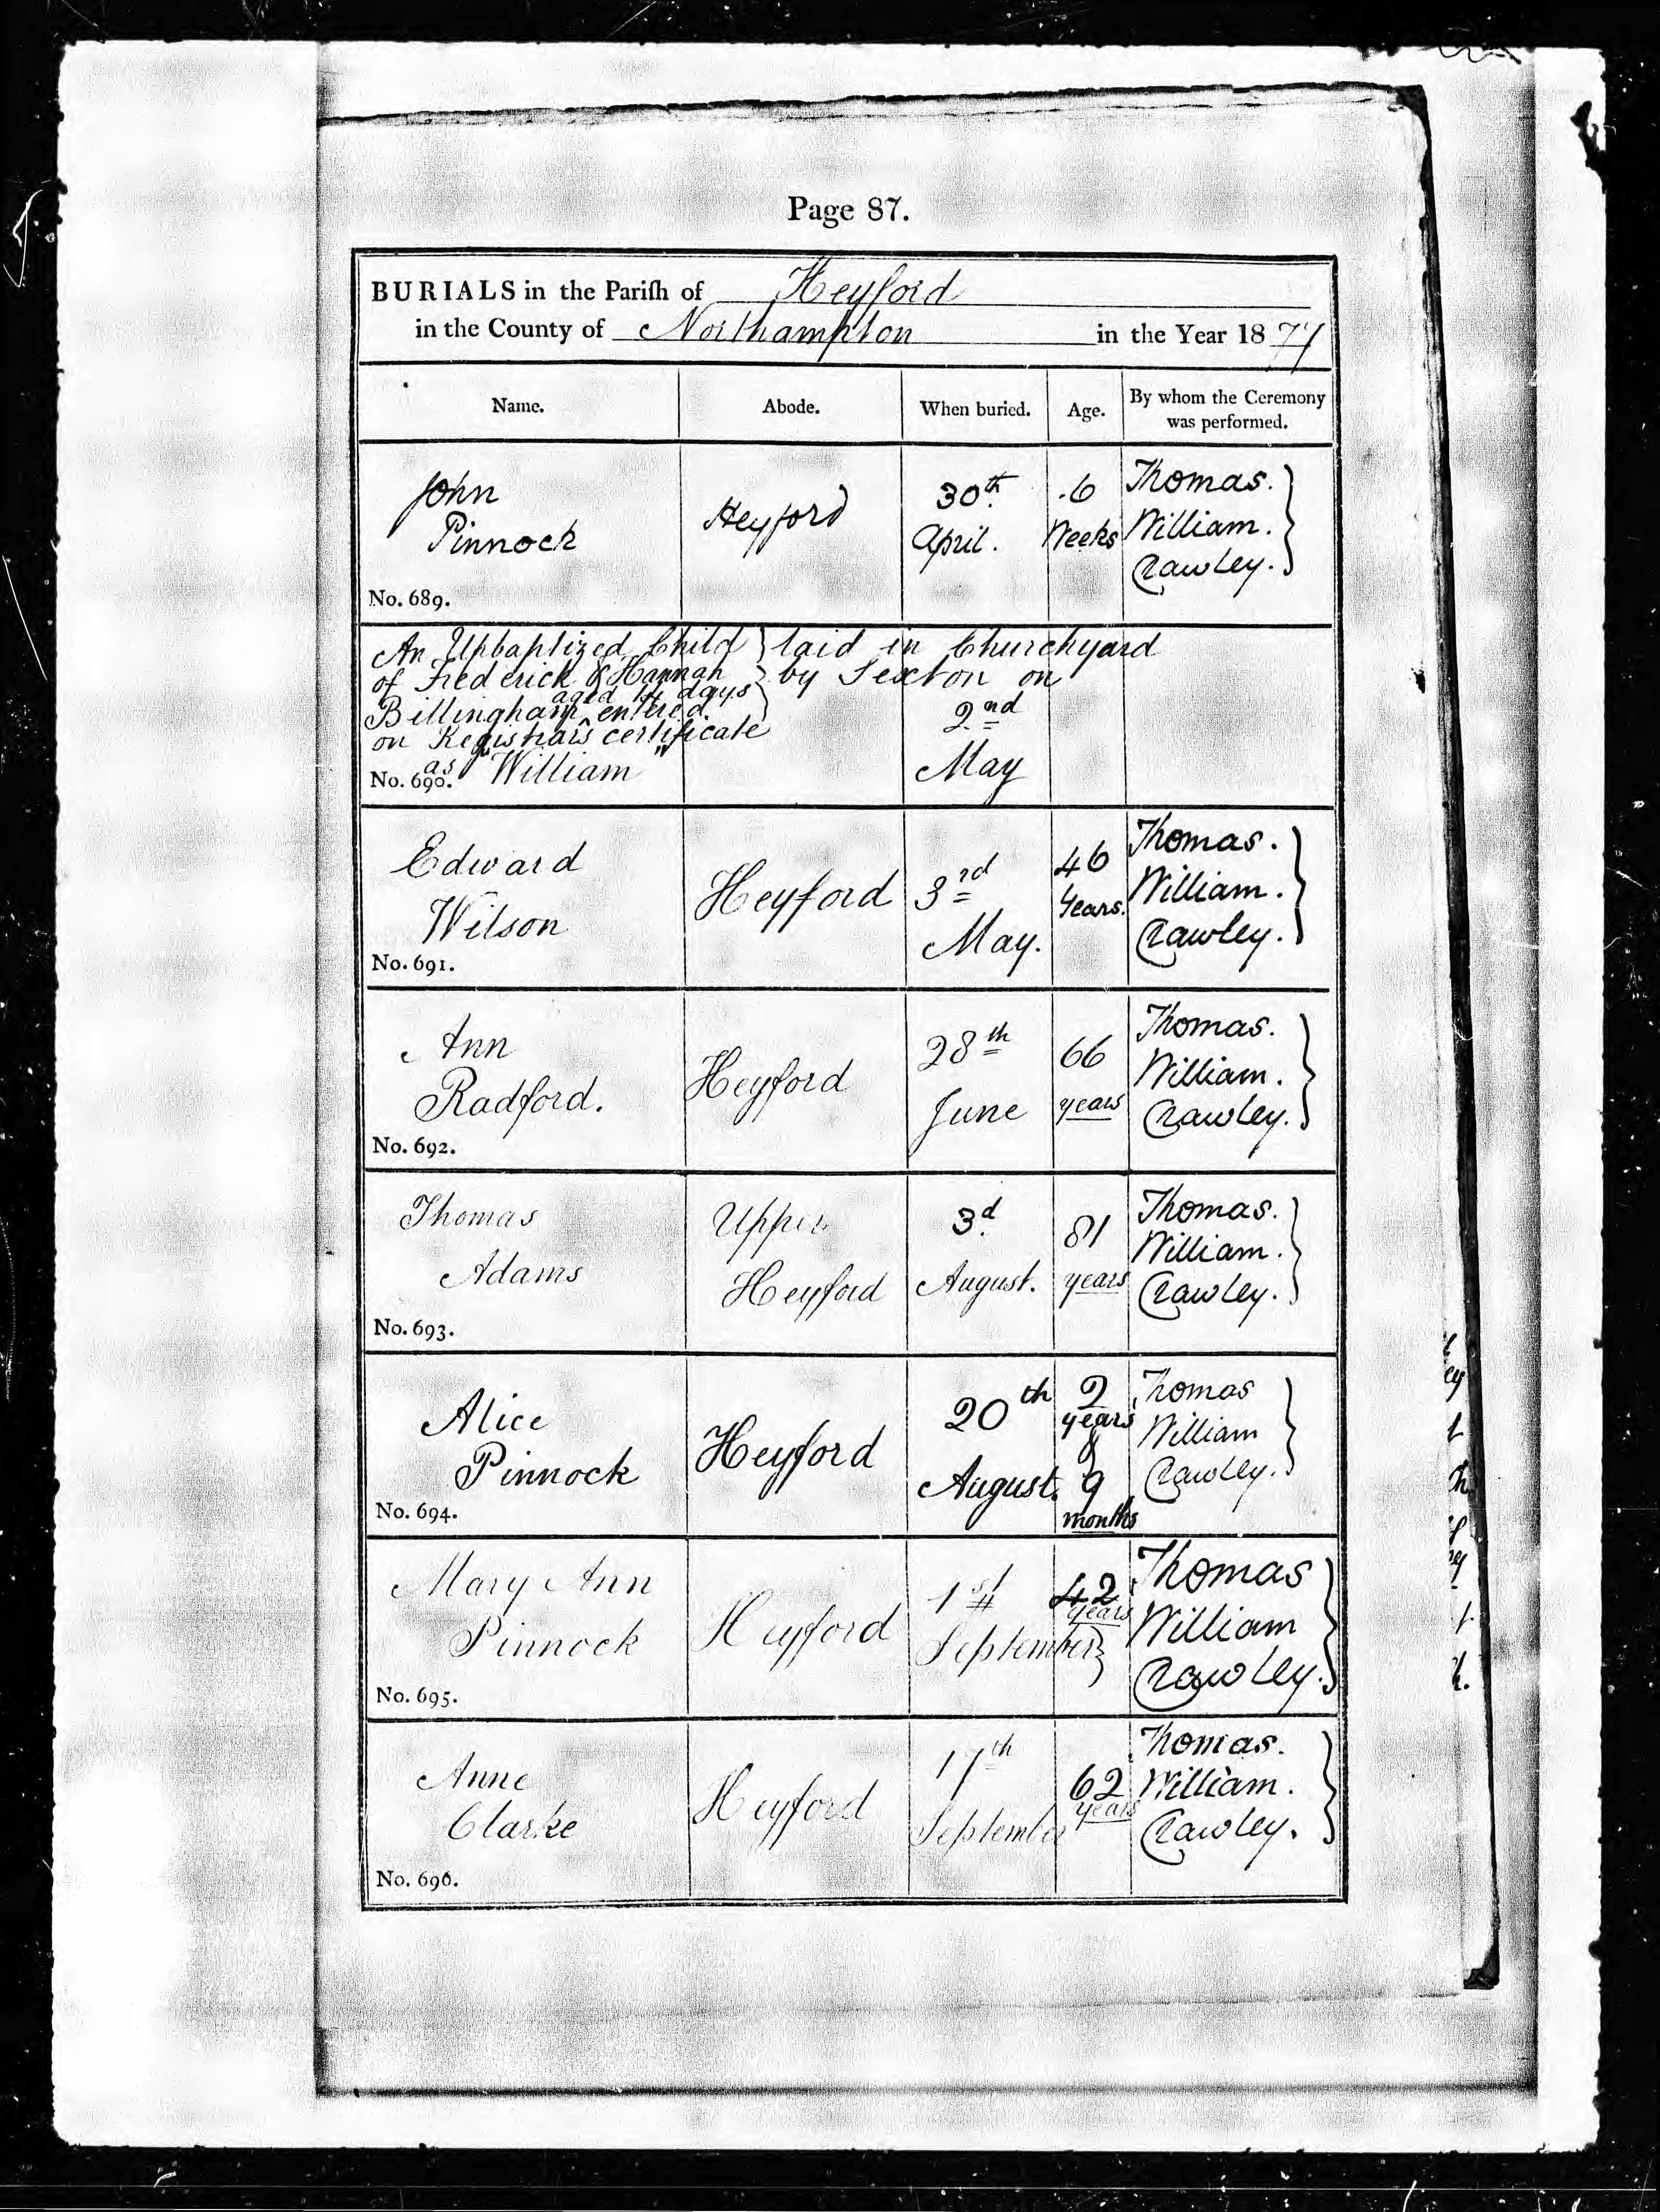 Page 87.
BURIALS in the Pariſh of Heyford
in the County of Northampton in the Year 1877
Name. Abode. When buried. Age. By whom the Ceremony was performed.
John Pinnock
Heyford
30th April.
6 Weeks
Thomas. William. Crawley.
No. 689.
An Unbaptized Child
of Frederick & Hannah
aged 14 days
Billingham entered
on Registrars certificate
as "William"
laid in Churchyard
by Sexton on
2nd
May
No. 690.
Edward
Wilson
Heyford
3rd
May.
46
Years.
Thomas.
William.
Crawley.
No. 691.
Ann
Radford.
Heyford
28th
June
66
years
Thomas.
William.
Crawley.
No. 692.
Thomas
Adams
Upper
Heyford
3d.
August.
81
years
Thomas.
William.
Crawley.
No. 693.
Alice
Pinnock
Heyford
20th
August.
2
years
&
9
months
Thomas
William
Crawley.
No. 694.
Mary Ann
Pinnock
Heyford
1st
September
42
years
Thomas
William
Crawley.
No. 695.
Anne
Clarke
Heyford
17th
September
62
years
Thomas.
William.
Crawley.
No. 696.